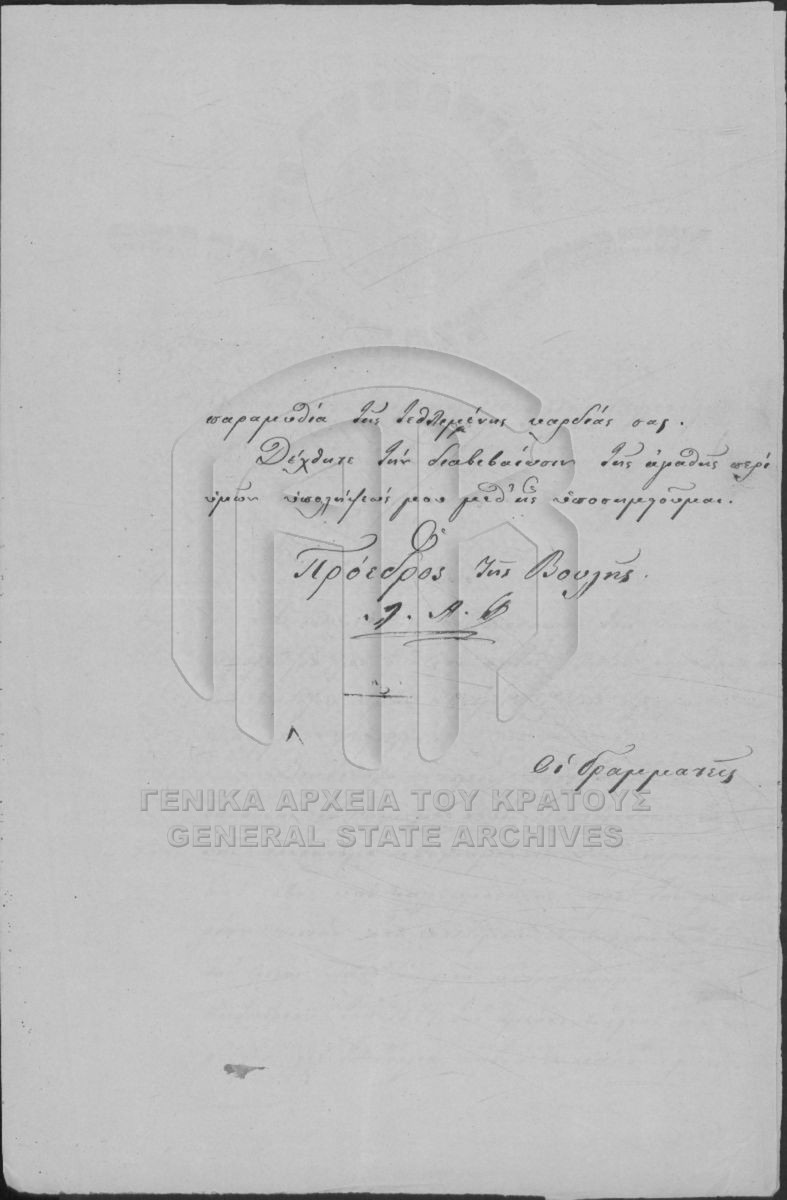 παραμυθία τῆς τεθλιμένης καρδίας σας.
Δέχθητε τὴν διαβεβαίωσιν τῆς ἀγαθῆς περὶ
ὑμῶν ὑπολήψεώς μου μεθ' ἧς ὑποσημειοῦμαι.
Ὁ
Πρόεδρος τῆς Βουλῆς.
Οἱ Γραμματεῖς
ΓΕΝΙΚΑ ΑΡΧΕΙΑ ΤΟΥ ΚΡΑΤΟΥΣ
GENERAL STATE ARCHIVES